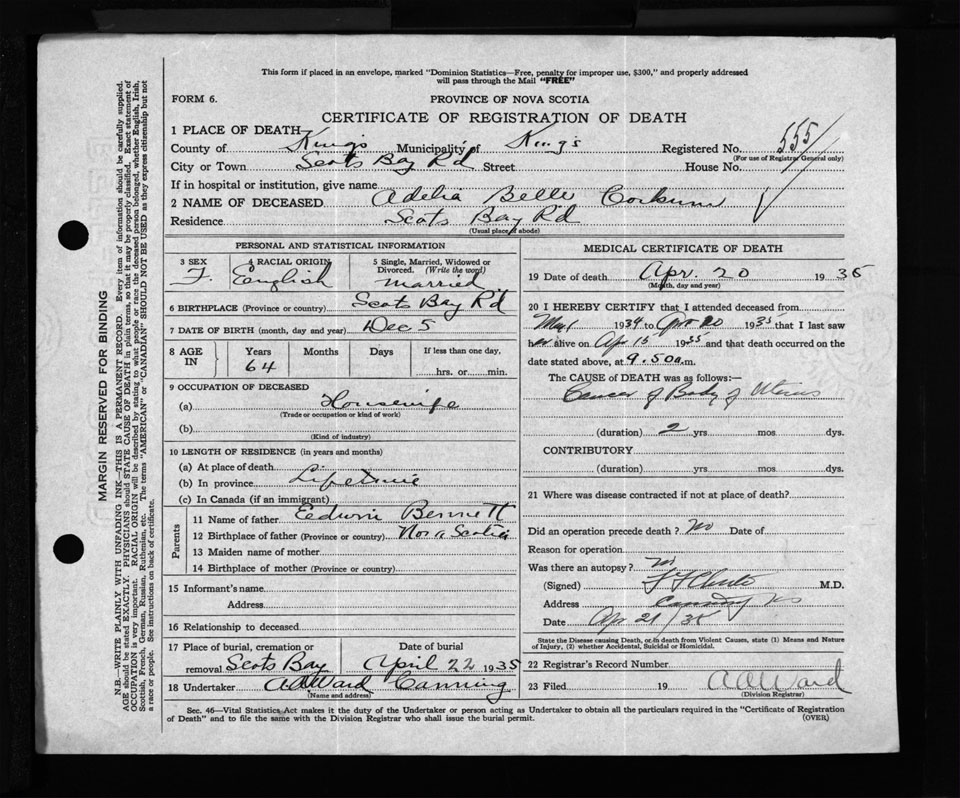 This form if placed in an envelope, marked "Dominion Statistics—Free, penalty for improper use, $300," and properly addressed
will pass through the Mail "FREE"
FORM 6.
PROVINCE OF NOVA SCOTIA
CERTIFICATE OF REGISTRATION OF DEATH
1 PLACE OF DEATH
County of Kings Municipality of Kings Registered No. 555
(For use of Registrar General only)
City or Town Scots Bay Rd Street House No.
If in hospital or institution, give name
2 NAME OF DECEASED Adelia Belle Corkum
Residence Scots Bay R'd
(Usual place of abode)
PERSONAL AND STATISTICAL INFORMATION
3 SEX 4 RACIAL ORIGIN 5 Single, Married, Widowed or
Divorced. (Write the word)
F. English married
6 BIRTHPLACE (Province or country) Scots Bay R'd
7 DATE OF BIRTH (month, day and year) Dec 5
8 AGE IN Years Months Days If less than one day,
64 hrs. or min.
9 OCCUPATION OF DECEASED
(a) Housewife
(Trade or occupation or kind of work)
(b)
(Kind of industry)
10 LENGTH OF RESIDENCE (in years and months)
(a) At place of death
(b) In province Lifetime
(c) In Canada (if an immigrant)
Parents
11 Name of father Eedwin Bennett
12 Birthplace of father (Province or country) Nova Scotia
13 Maiden name of mother
14 Birthplace of mother (Province or country)
15 Informant's name
Address
16 Relationship to deceased
17 Place of burial, cremation or
removal Scots Bay April 22 1935
18 Undertaker A D Ward Canning
(Name and address)
MEDICAL CERTIFICATE OF DEATH
19 Date of death Apr. 20 1935
(Month, day and year)
20 I HEREBY CERTIFY that I attended deceased from
May 1934 to Apr 20 1935 that I last saw
her alive on Apr 15 1935 and that death occurred on the
date stated above, at 9.50 a.m.
The CAUSE of DEATH was as follows:—
Cancer of Body of Uterus
(duration) 2 yrs mos dys.
CONTRIBUTORY
(duration) yrs. mos. dys.
21 Where was disease contracted if not at place of death?
Did an operation precede death? No Date of
Reason for operation
Was there an autopsy? No
(Signed) M.D.
Address
Date Ap 21/35
State the Disease causing Death, or in death from Violent Causes, state (1) Means and Nature
of Injury, (2) whether Accidental, Suicidal or Homicidal.
22 Registrar's Record Number
23 Filed 19 A D Ward
(Division Registrar)
Sec. 46—Vital Statistics Act makes it the duty of the Undertaker or person acting as Undertaker to obtain all the particulars required in the "Certificate of Registration
of Death" and to file the same with the Division Registrar who shall issue the burial permit. (OVER)
MARGIN RESERVED FOR BINDING
N.B.—WRITE PLAINLY WITH UNFADING INK—THIS IS A PERMANENT RECORD. Every item of information should be carefully supplied.
AGE should be stated EXACTLY. PHYSICIANS should STATE CAUSE OF DEATH in plain terms, so that it may be properly classified. Exact statement of
OCCUPATION is very important. RACIAL ORIGIN will be described by stating to what people or race the deceased person belonged, whether English, Irish,
Scottish, French, German, Russian, Ruthenian, etc. The terms "AMERICAN" or "CANADIAN" SHOULD NOT BE USED as they express citizenship but not
a race or people. See instructions on back of certificate.